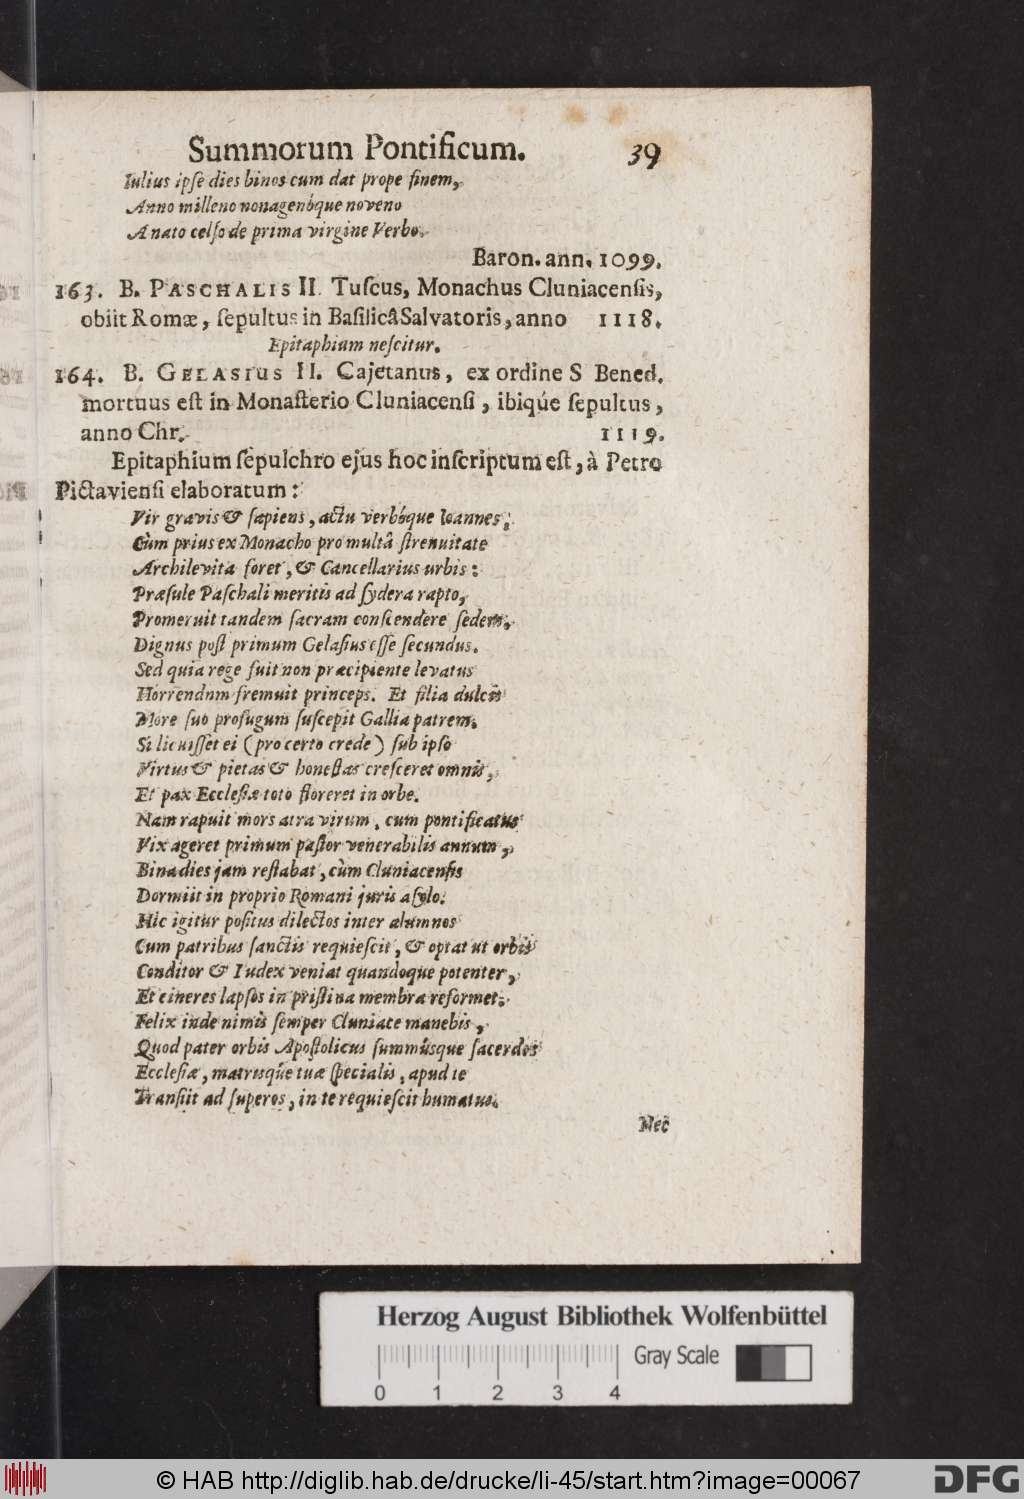 Summorum Pontificum. 39
Iulius ipſe dies binos cum dat prope finem,
Anno milleno nonagenóque noveno
A nato celſo de prima virgine Verbo.
Baron. ann. 1099.
163. B. PASCHALIS II. Tuſcus, Monachus Cluniacenſis,
obiit Romæ, ſepultus in Baſilicâ Salvatoris, anno 1118.
Epitaphium neſcitur.
164. B. GELASIUS II. Cajetanus, ex ordine S Bened.
mortuus eſt in Monaſterio Cluniacenſi, ibiqúe ſepultus,
anno Chr. 1119.
Epitaphium ſepulchro ejus hoc inſcriptum eſt, à Petro
Pictavienſi elaboratum:
Vir gravis & ſapiens, actu verbóque Ioannes;
Cùm prius ex Monacho pro multâ ſtrenuitate
Archilevita foret, & Cancellarius urbis:
Præſule Paſchali meritis ad ſydera rapto,
Promeruit tandem ſacram conſcendere ſedem,
Dignus poſt primum Gelaſius eſſe ſecundus.
Sed quia rege fuit non præcipiente levatus
Horrendum fremuit princeps. Et filia dulcis
More ſuo profugum ſuſcepit Gallia patrem.
Si licuiſſet ei (pro certo crede) ſub ipſo
Virtus & pietas & honeſtas creſceret omnis,
Et pax Eccleſiæ toto floreret in orbe.
Nam rapuit mors atra virum, cum pontificatus
Vix ageret primum paſtor venerabilis annum,
Bina dies jam reſtabat, cùm Cluniacenſis
Dormiit in proprio Romani juris aſylo.
Hic igitur poſitus dilectos inter alumnos
Cum patribus ſanctis requieſcit, & optat ut orbis
Conditor & Iudex veniat quandoque potenter,
Et cineres lapſos in priſtina membra reformet.
Felix inde nimis ſemper Cluniace manebis,
Quod pater orbis Apoſtolicus ſummúsque ſacerdos
Eccleſiæ, matrisqúe tuæ ſpecialis, apud te
Tranſiit ad ſuperos, in te requieſcit humatus.
Nec
Herzog August Bibliothek Wolfenbüttel
Gray Scale
0 1 2 3 4
© HAB http://diglib.hab.de/drucke/li-45/start.htm?image=00067
DFG